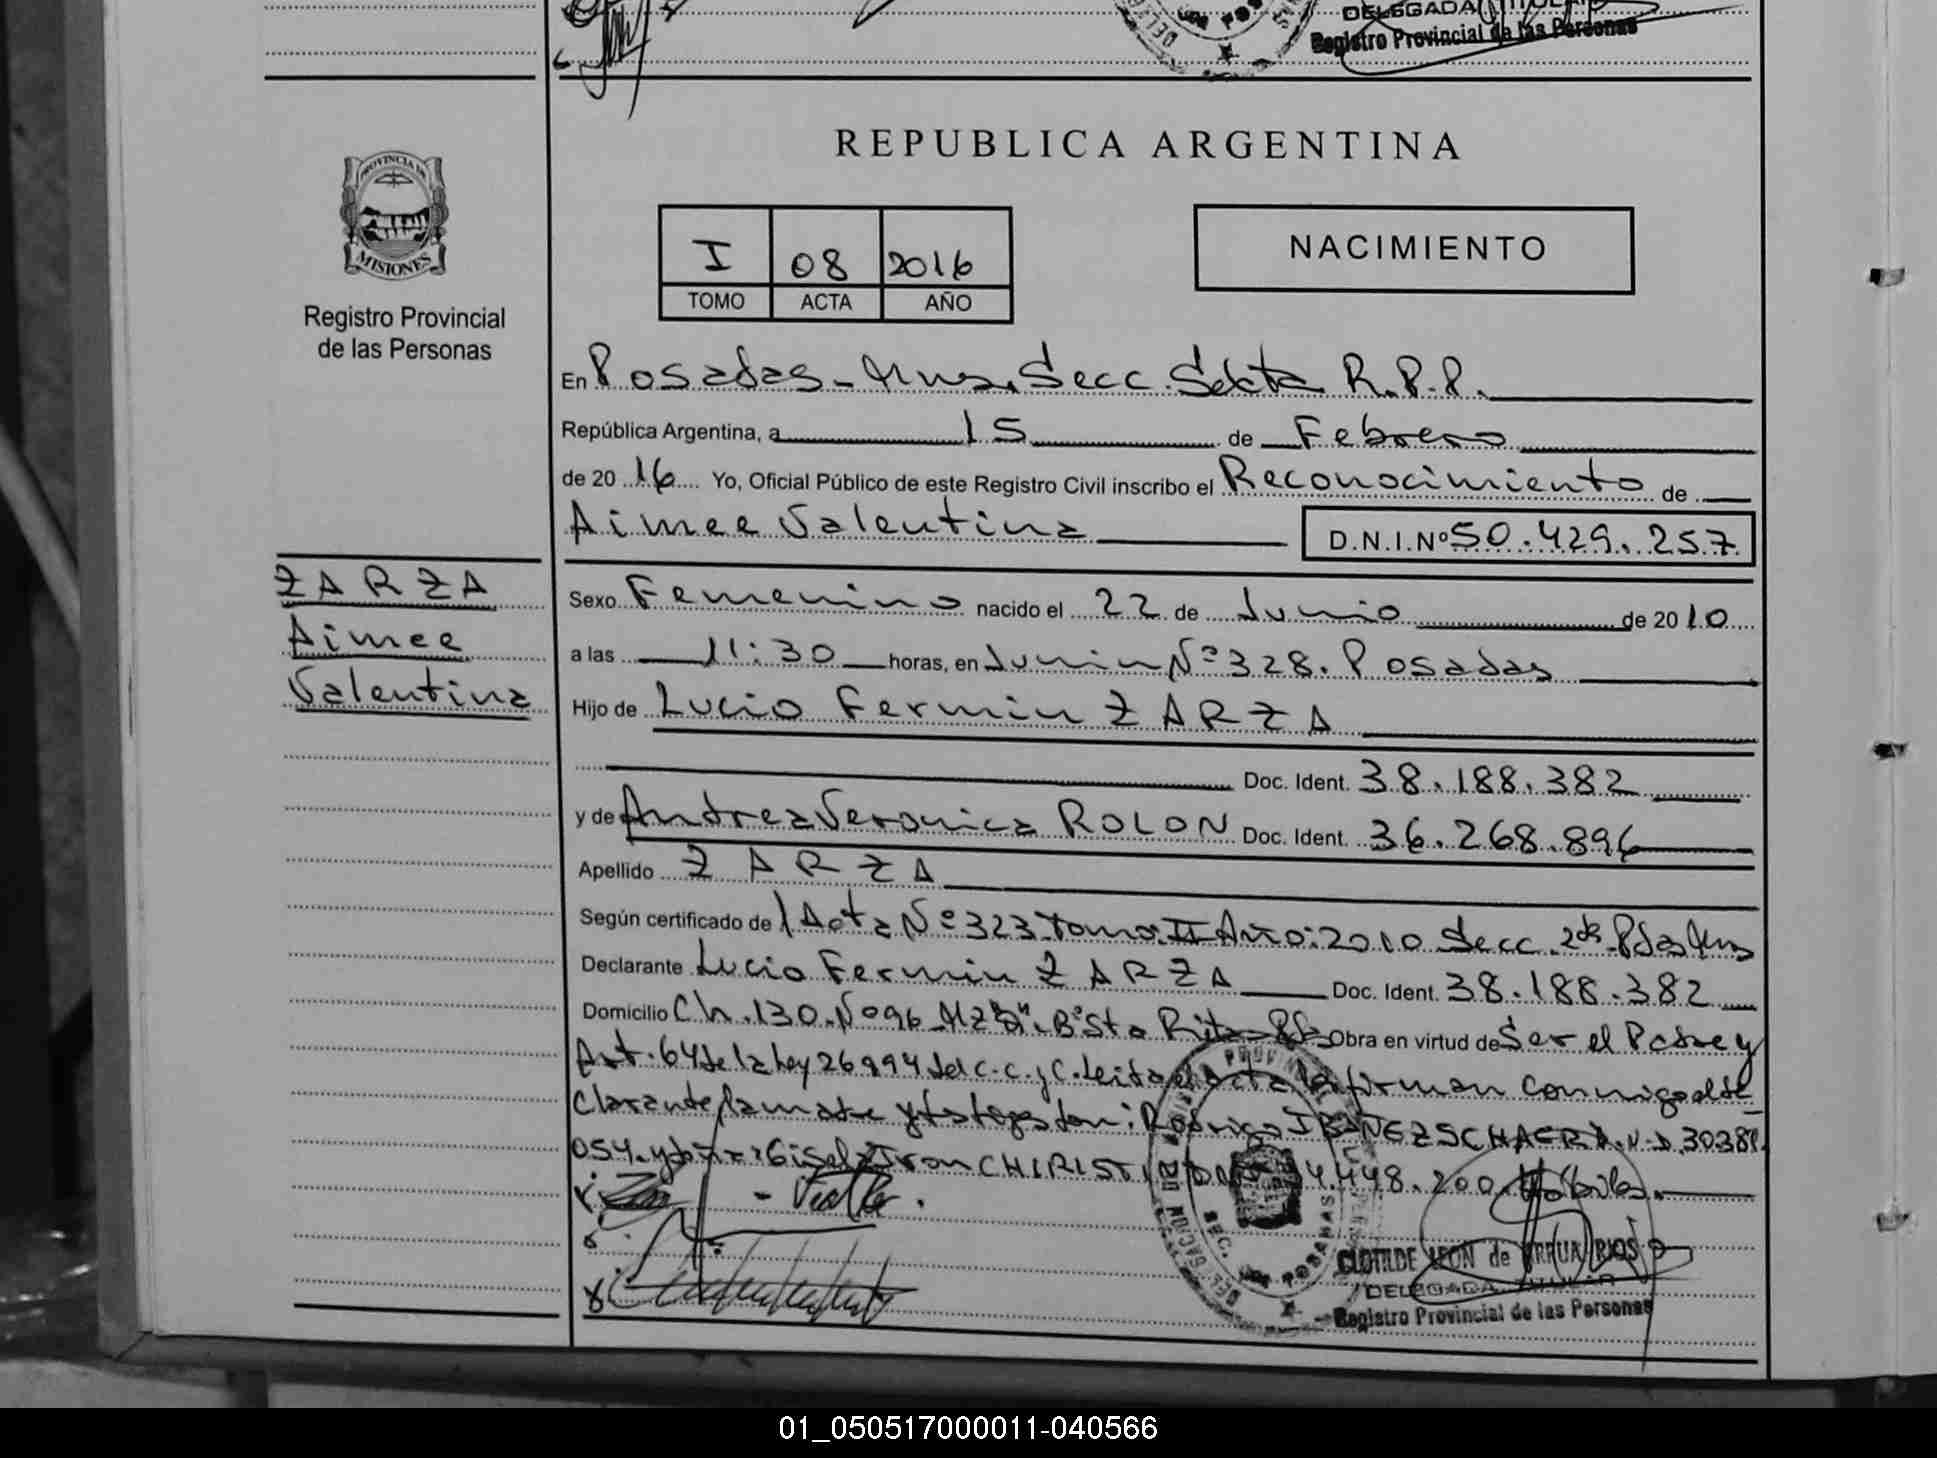 DELEGADA TITULAR
Registro Provincial de las Personas
REPUBLICA ARGENTINA
PROVINCIA DE
MISIONES
Registro Provincial
de las Personas
I 08 2016
TOMO ACTA AÑO
NACIMIENTO
En Posadas - Mnes. Secc. Sexta R.P.P.
República Argentina, a 15 de Febrero
de 2016 Yo, Oficial Público de este Registro Civil inscribo el Reconocimiento de
Aimee Valentina D.N.I.Nº 50.429.257
ZARZA
Aimee
Valentina
Sexo Femenino nacido el 22 de Junio de 2010
a las 11:30 horas, en Junin Nº 328. Posadas
Hijo de Lucio Fermin ZARZA
Doc. Ident. 38.188.382
y de Andrea Veronica ROLON Doc. Ident. 36.268.896
Apellido ZARZA
Según certificado de Acta Nº 323 Tomo II Año: 2010 Secc. 2da Pdas Mns
Declarante Lucio Fermin ZARZA Doc. Ident. 38.188.382
Domicilio Ch. 130. Nº 96 Mz Bº Sta Rita - Pdas Obra en virtud de Ser el Padre y
Art. 64 de la Ley 26994 del C.C. y C. Leida el acta la firman conmigo el de
clarante, la madre y testigos don: Rodrigo IBAÑEZ SCHAEFER D.N.I. 30381.
054. y doña: Gisela CHIRISTIN 4.448.200. Hábiles.
CLOTILDE LEON de ARRUA RIOS
DELEGADA TITULAR
Registro Provincial de las Personas
01_050517000011-040566